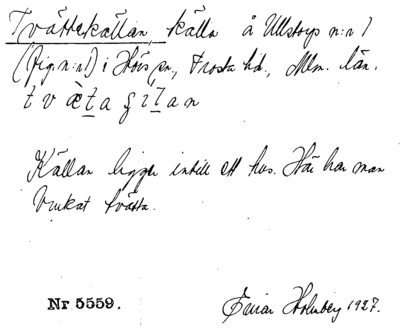 Tvättekällan, källa å Ullstorps n:r 1
(fig. n:r 1) i Hörs sn, Frosta hd., Mlm. län.
t v æ̀ t a ʂ i l a n
Källan ligger intill ett hus. Här har man
brukat tvätta.
Nr 5559. Einar Holmberg 1927.